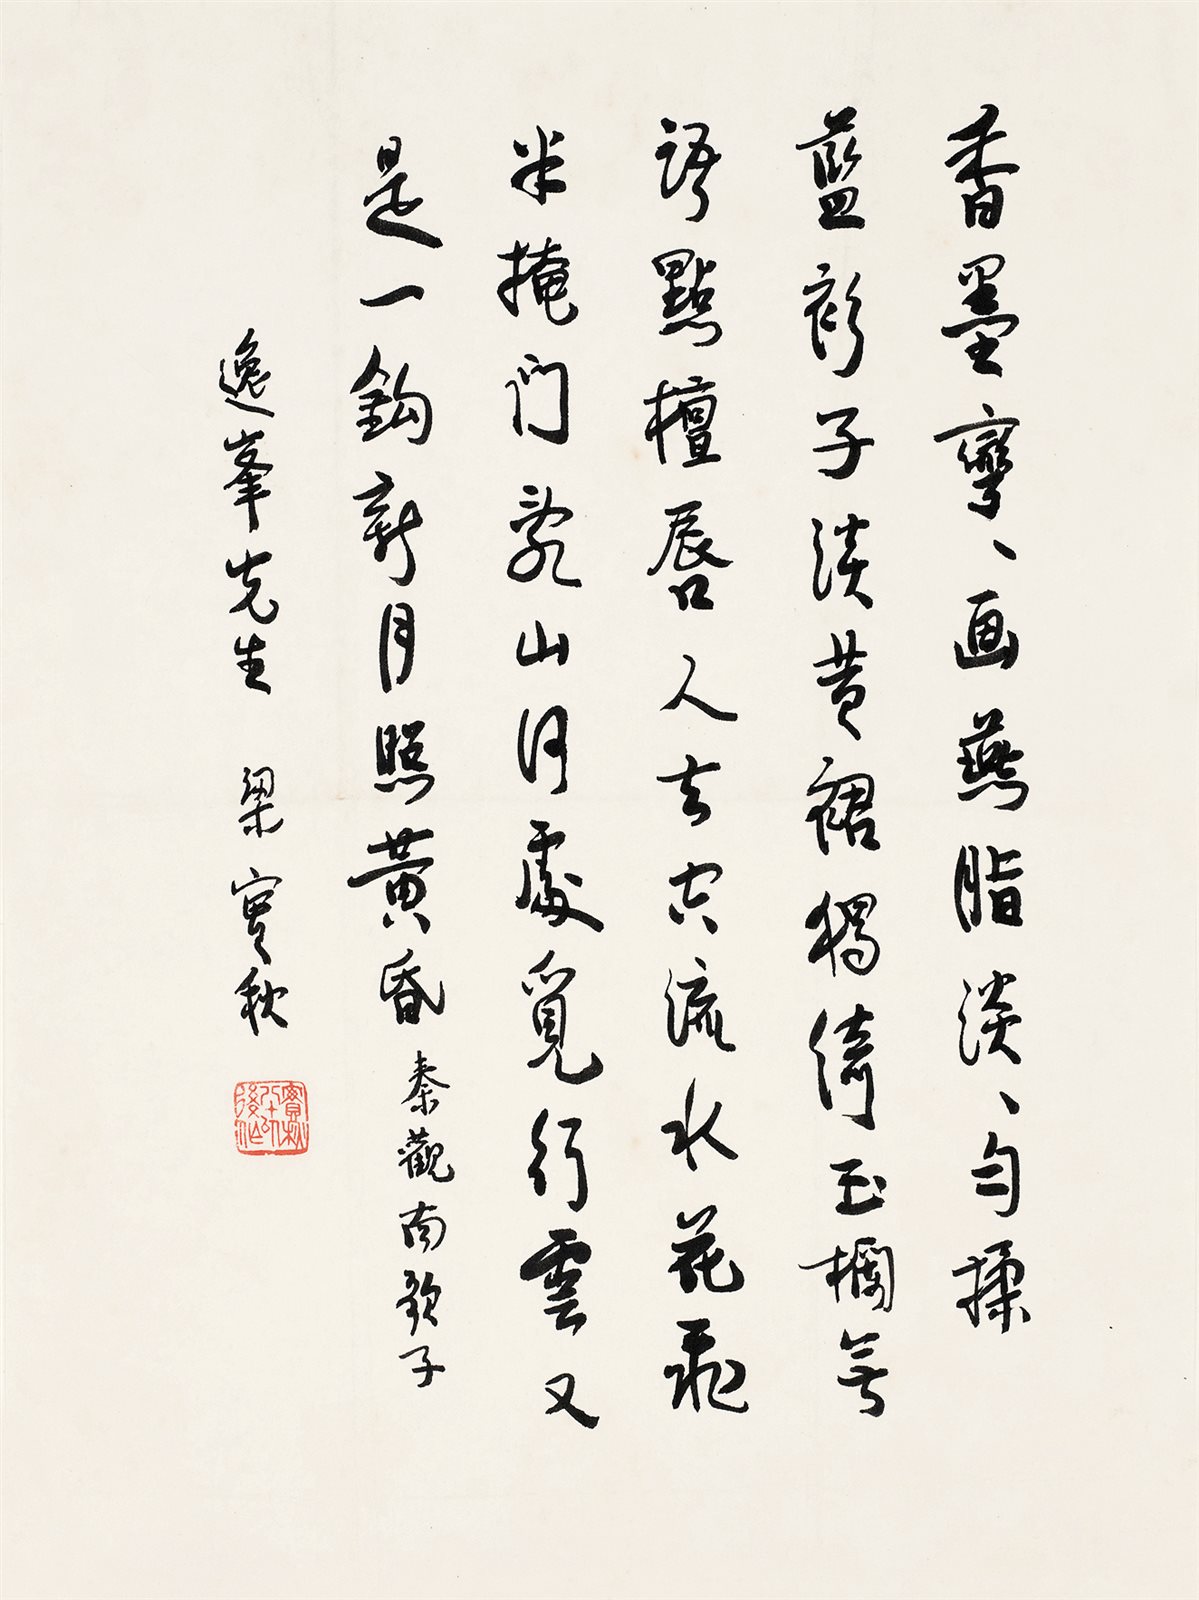 香墨彎、画燕脂淡、勻揉
藍衫子淡黃裙獨倚玉欄無
語點檀唇人去空流水花飛
半掩門亂山何處覓行雲又
是一鈎新月照黃昏 秦觀南歌子
逸峯先生 梁實秋
實秋八十以後作